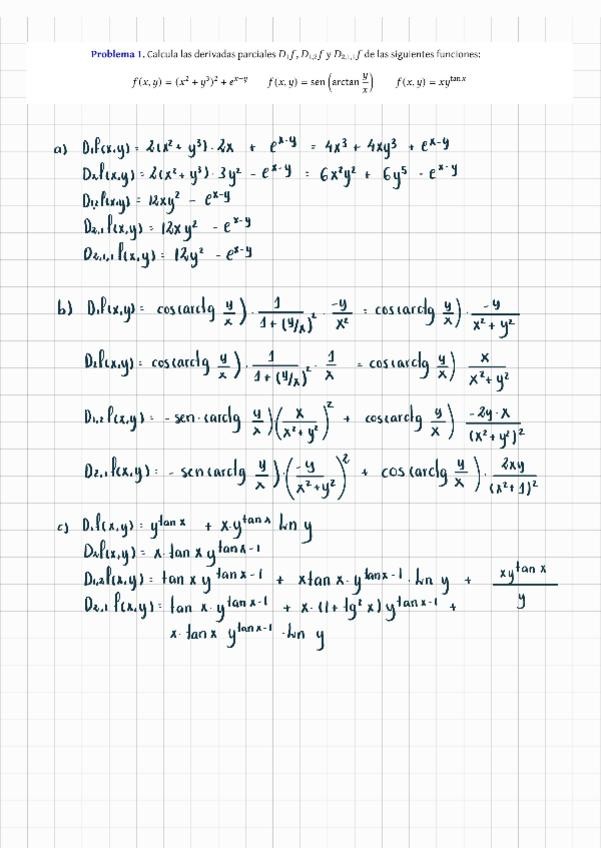 Problema 1. Calcula las derivadas parciales D₁f, D₁,₂f y D₂,₁,₁f de las siguientes funciones:
f(x, y) = (x² + y³)² + e^{x−y} f(x, y) = sen (arctan y/x) f(x, y) = xy^{tan x}
a) D₁f(x,y) = 2(x² + y³) · 2x + e^{x-y} = 4x³ + 4xy³ + e^{x-y}
D₂f(x,y) = 2(x² + y³) · 3y² - e^{x-y} = 6x²y² + 6y⁵ - e^{x-y}
D₁,₂f(x,y) = 12xy² - e^{x-y}
D₂,₁f(x,y) = 12xy² - e^{x-y}
D₂,₁,₁f(x,y) = 12y² - e^{x-y}
b) D₁f(x,y) = cos(arctg y/x) · 1/(1 + (y/x)²) · -y/x² = cos(arctg y/x) · -y/(x² + y²)
D₂f(x,y) = cos(arctg y/x) · 1/(1 + (y/x)²) · 1/x = cos(arctg y/x) x/(x² + y²)
D₁,₂f(x,y) = - sen · (arctg y/x)(x/(x² + y²))² + cos(arctg y/x) -2y · x/(x² + y²)²
D₂,₁f(x,y) = - sen(arctg y/x) · (-y/(x² + y²))² + cos(arctg y/x) · 2xy/(x² + 1)²
c) D₁f(x,y) = y^{tan x} + x · y^{tan x} Ln y
D₂f(x,y) = x · tan x y^{tan x - 1}
D₁,₂f(x,y) = tan x y^{tan x - 1} + x tan x · y^{tan x - 1} · Ln y + xy^{tan x}/y
D₂,₁f(x,y) = tan x · y^{tan x - 1} + x · (1 + tg² x) y^{tan x - 1} +
x · tan x y^{tan x - 1} · Ln y